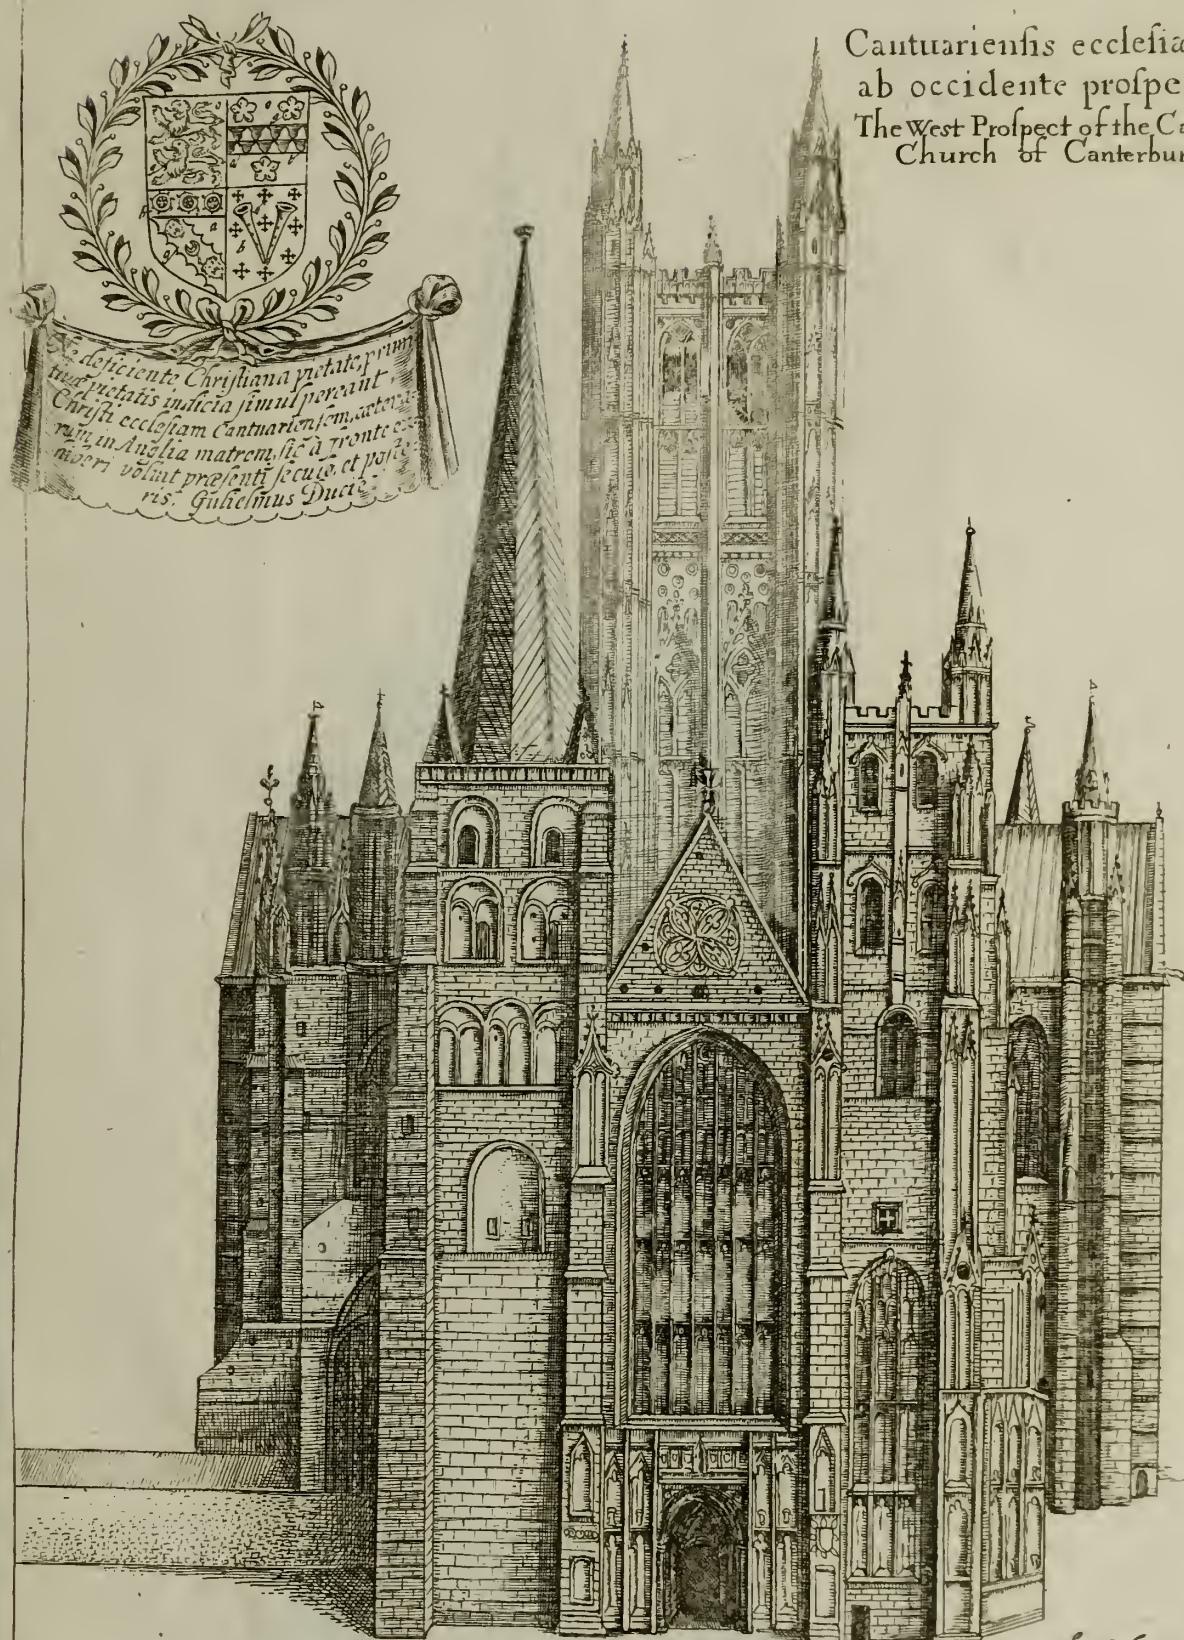 Cantuariensis ecclesiæ
ab occidente prospe
The West Prospect of the Ca
Church of Canterbur
Ne deficiente Christiana pietate, primi
tivæ pietatis indicia simul pereant,
Christi ecclesiam Cantuariensem, cætera
rum in Anglia matrem, sic à fronte
voluit præsenti seculo, et poste
ris. Gulielmus Ducie